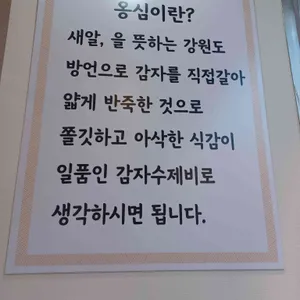 옹심이란?
새알, 을 뜻하는 강원도
방언으로 감자를 직접갈아
얇게 반죽한 것으로
쫄깃하고 아삭한 식감이
일품인 감자수제비로
생각하시면 됩니다.